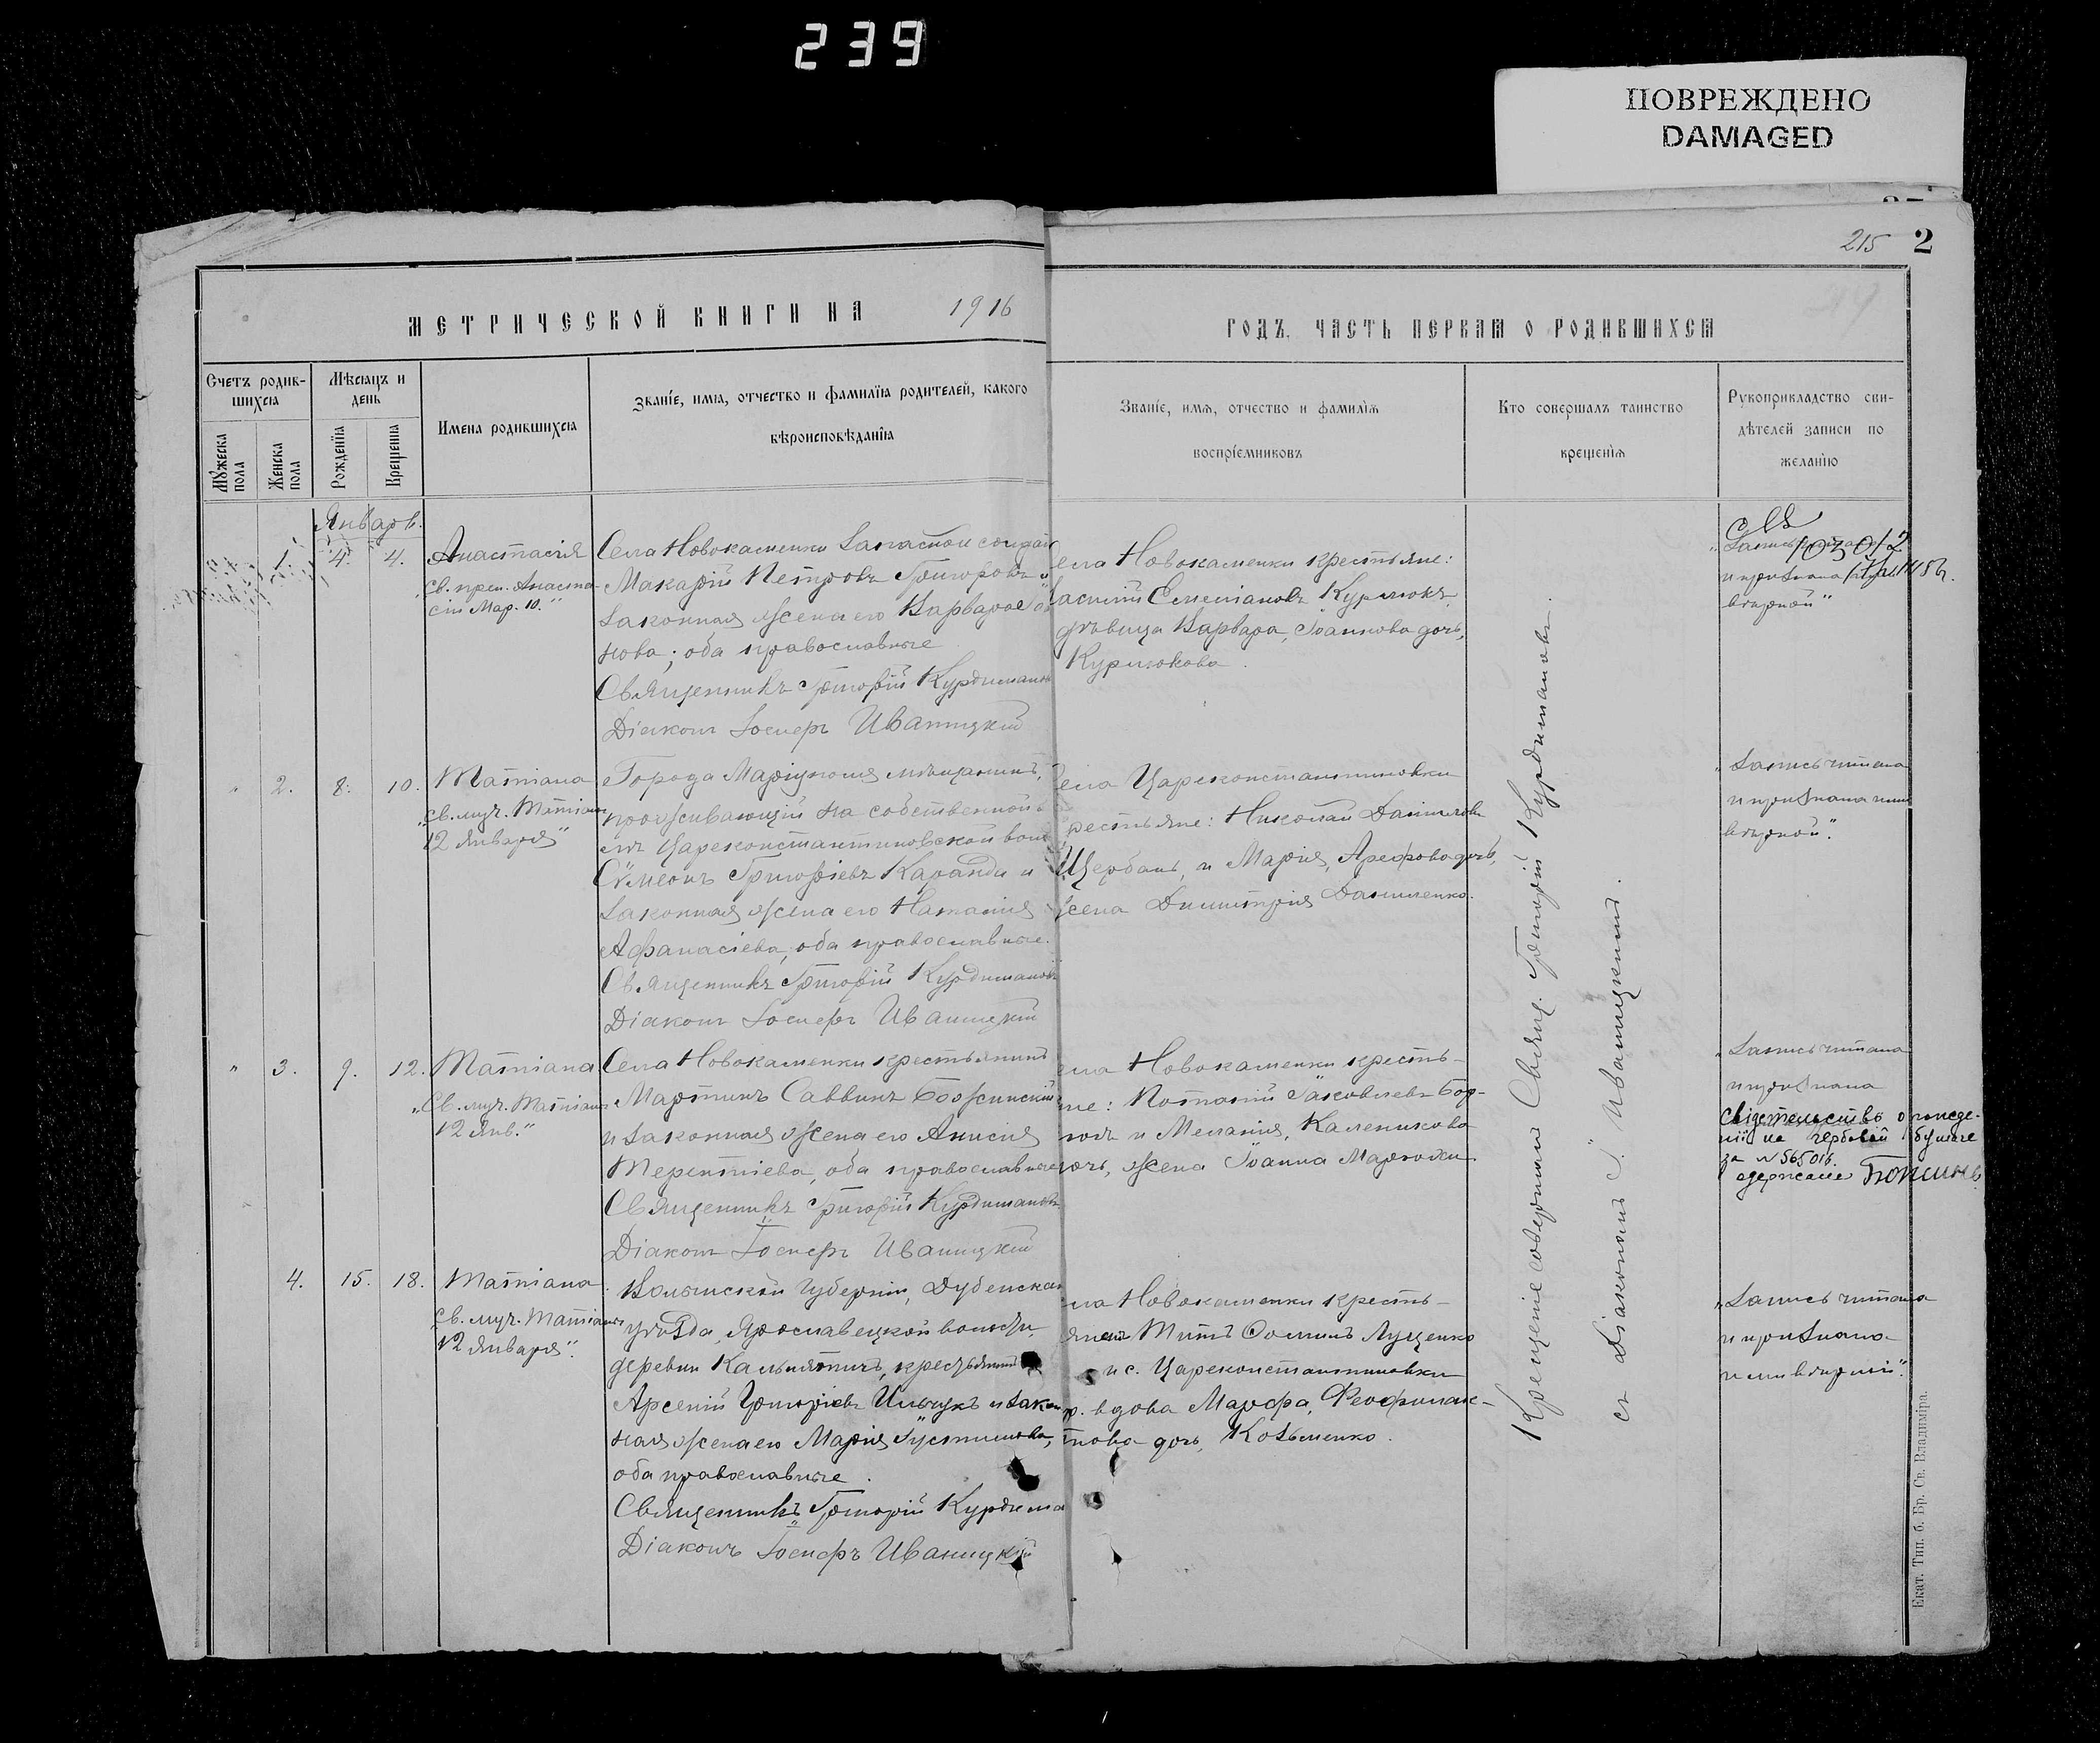 239
ПОВРЕЖДЕНО
DAMAGED
215 2
МЕТРИЧЕСКОЙ КНИГИ НА 1916
ГОДЪ, ЧАСТЬ ПЕРВАЯ О РОДИВШИХСЯ
Счетъ родив-
шихся
Мужеска
пола
Женска
пола
Мѣсяцъ и
день
Рожденія
Крещенія
Имена родившихся
Званіе, имя, отчество и фамилія родителей, какого
вѣроисповѣданія
Званіе, имя, отчество и фамилія
воспріемниковъ
Кто совершалъ таинство
крещенія
Рукоприкладство сви-
дѣтелей записи по
желанію
Январь.
1. 4. 4.
Анастасія
св. преп. Анаста-
сіи Мар. 10."
Села Новокаменки запасной солдат
Макарій Петровъ Григоровъ и
законная жена его Варвара
нова; оба православные
Священникъ Григорій Курдимановъ
Діаконъ Іосифъ Иваницкій
ела Новокаменки крестьяне:
асилій Семеіановъ Курилюкъ
дѣвица Варвара, Іоаннова дочь,
Курилюкова.
10302
и признана
вѣрной"
" 2. 8. 10.
Татіана
"св. муч. Татіаны
12 Января"
Города Маріуполя мѣщанинъ,
проживающій на собственной з
млѣ Цареконстантиновской вол
Сѵмеонъ Григоріевъ Каранда и
законная жена его Наталія
Афанасіева, оба православные.
Священникъ Григорій Курдимановъ
Діаконъ Іосифъ Иваницкій
ела Цареконстантиновки
рестьяне: Николай Даниловъ
Щербань, и Марія, Арефова дочь,
жена Димитрія Даниленко.
"Запись читана
и признана нами
вѣрной".
" 3. 9. 12.
Татіана
"Св. муч. Татіаны
12 Янв."
Села Новокаменки крестьянинъ
Мартинъ Саввинъ Божинскій
и законная жена его Анисія
Терентіева, оба православные
Священникъ Григорій Курдимановъ
Діаконъ Іосифъ Иваницкій
ела Новокаменки кресть-
не: Потапій Іаковлевъ Бод-
и Меланія, Каленикова
дочь, жена Іоанна
"Запись читана
и признана
свідетельство о
нії на гербовій бумаге
за №565016.
одержане
4. 15. 18.
Татіана
св. муч. Татіаны
12 Января".
Волынской губерніи, Дубенскаго
уѣзда, Ярославецкой волости,
деревни крестьянинъ
Арсеній Григоріевъ Ильчукъ и закон
ная жена его Марія Іустинова,
оба православные.
Священникъ Григорій Курдима
Діаконъ Іосифъ Иваницкій
ла Новокаменки кресть-
янинъ Титъ Ѳоминъ Луценко
и с. Цареконстантиновки
кр. вдова Марфа, Феофилак-
това дочь, Козьменко.
"Запись читана
и признана
нами вѣрной".
Крещеніе совершилъ Свящ. Григорій Курдимановъ
съ Діакономъ І. Иваницкимъ.
Екат. Тип. б. Бр. Св. Владиміра.